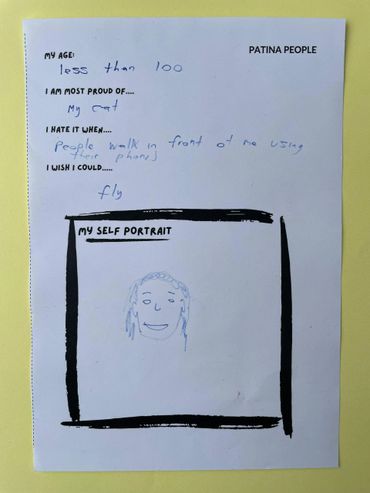 PATINA PEOPLE
MY AGE:
less than 100
I AM MOST PROUD OF....
My cat
I HATE IT WHEN....
People walk in front of me using
their phones
I WISH I COULD.....
fly
MY SELF PORTRAIT